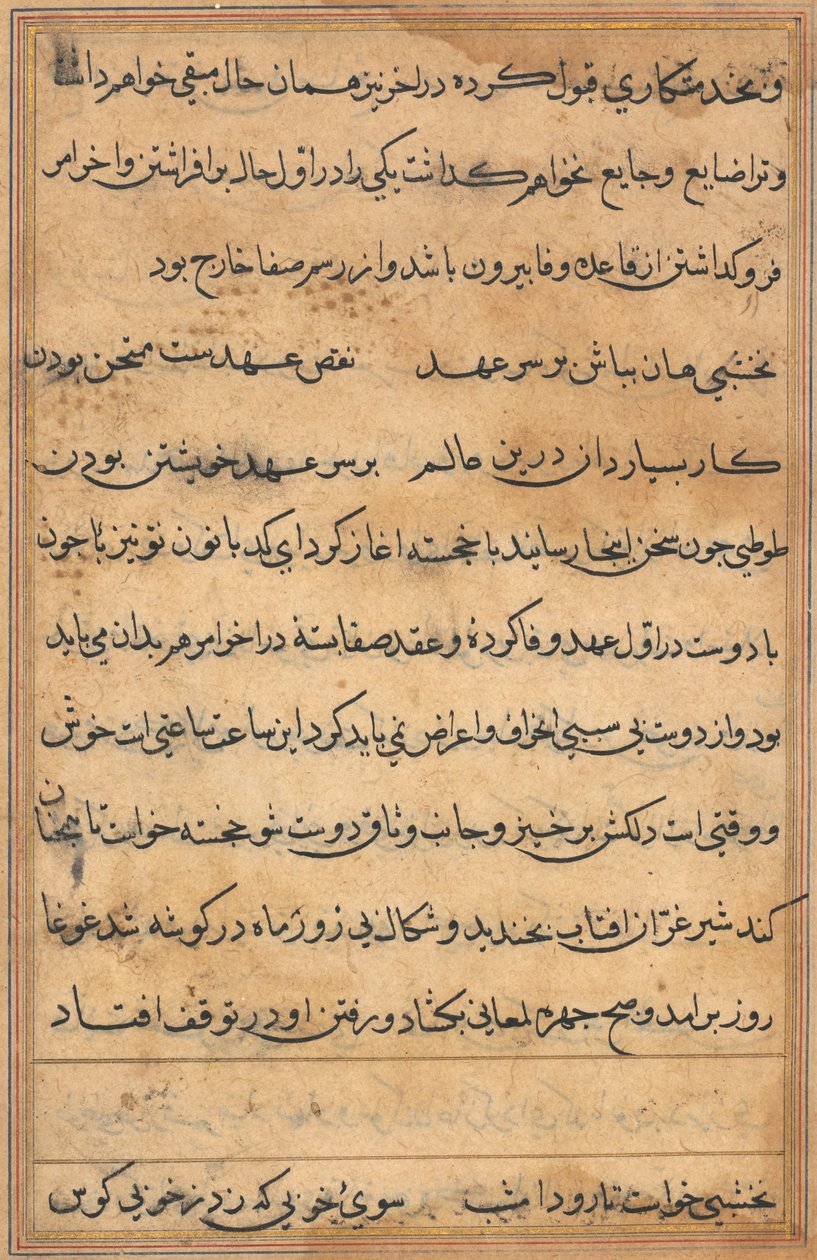 و بخدمتکاري قبول کرده در اخر نیز همان حال مبقي خواهم داشت
و ترا ضایع و جایع نخواهم کداشت یکي را در اوّل حال برافراشتن و اخر امر
فرو کداشتن از قاعده وفا بیرون باشد و از رسم صفا خارج بود
نخشبي هان بباش بر سر عهد نقض عهدست ممتحن بودن
کار بسیار دان درین عالم بر سر عهد خویشتن بودن
طوطي جون سخن اینجا رسانید با خجسته اغاز کرد اي کدبانو تو نیز با جون
با دوست در اوّل عهد وفا کردهٔ و عقد صفا بستهٔ در اخر امر هم بدان مي باید
بود و از دوست بي سببي انحراف و اعراض نمي باید کرد این ساعت ساعتي است خوش
و وقتي است دلکش برخیز و جانب وثاق دوست شو خجسته خواست تا همجنان
کند شیر غرّان افتاب بخندید و شکال بي زور ماه در کوشه شد غوغا
روز برامد و صبح جهره لمعاني بکشاد و رفتن او در توقف افتاد
نخشبي خواست تا رود امشب سوئ خوبي که زد ز خوبي کوس